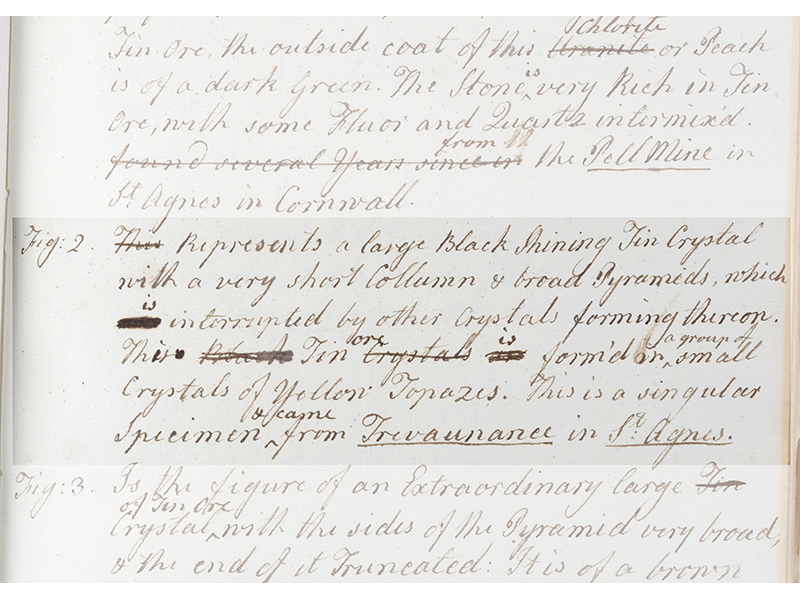 Tin Ore, the outside coat of this Uranite Chlorite or Peach
is of a dark Green. The Stone is very Rich in Tin
Ore, with some Fluor and Quartz intermix'd.
found several Years since in from the Pell Mine in
St. Agnes in Cornwall.
Fig: 2. This Represents a large Black Shining Tin Crystal
with a very short Collumn & broad Pyrameds, which
is interrupted by other Crystals forming thereon.
This Black Tin Crystals ore is form'd in a group of small
Crystals of Yellow Topazes. This is a singular
Specimen & came from Trevaunance in St. Agnes.
Fig: 3. Is the figure of an Extraordinary large Tin
Crystal of Tin Ore, with the sides of the Pyramid very broad,
& the end of it Truncated: It is of a brown